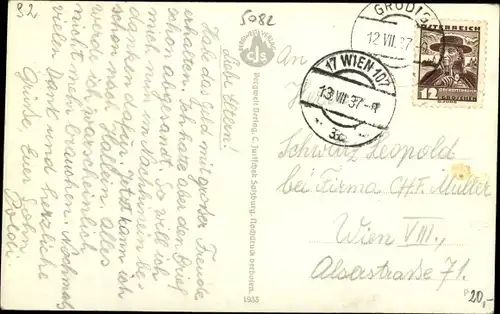 32
5082
Liebe Eltern!
Habe das Geld mit großer Freude
erhalten. Ich habe aber den Brief
schon abgesandt. So will ich
mich nun im Nachhinein be-
danken dafür. Jetzt kann ich
schon nach Hallein. Alles
werde ich warscheinlich
nicht mehr brauchen. Nochmals
vielen Dank und herzliche
Grüße, Euer Sohn
Poldi.
BERGWELT VERLAG
C J S
Bergwelt Verlag, C. Jurischek Salzburg. Nachdruck verboten.
1935
GRÖDIG
12 VII. 37
17 WIEN 107
13 VII 37
3c
ÖSTERREICH
12
An
Schwarz Leopold
bei Firma CH. F. Müller
Wien VIII.,
Alserstraße 71.
20,-